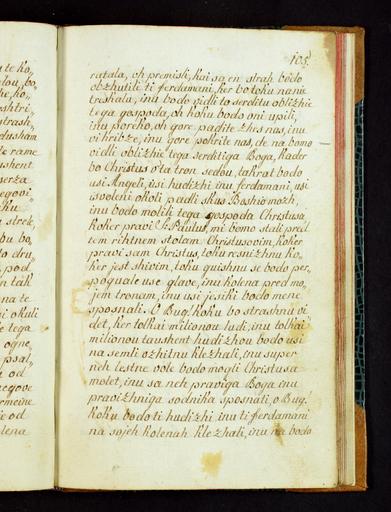 105
ratala, oh premisli, kai sa en strah bodo
obzhutili ti ferdamani, ker bo toku na nie
treskala, inu bodo vidli to serditu oblizhie
tega gospoda, oh koku bodo oni upili,
inu poreho, oh gore padite zhes nas, inu
vi hribze, inu gore pokrite nas, de na bomo
vidli oblizhie tega serditiga Boga, kader
bo Christus s'ta tron sedou, takrat bodo
usi Angeli, usi hudizhi inu ferdamani, usi
isvoleni okoli peidli skus Boshio mozh,
inu bodo molili tega gospoda Christusa,
koker pravi S: Paulus, mi bomo stali pred
tem rihtnem stolam Christusovim, koker
pravi sam Christus, toku resnizhnu ko,
ker jest shivim, toku guishnu se bodo per,
poguale use glave, inu kolena pred mo,
jem tronam, inu usi jesiki bodo mene
sposnali. O Bug! koku bo strashnu vi
det, ker tolkai milionou ludi, inu tolkai
milionou taushent hudizhou bodo usi
na semli ozhitnu klezhali, inu super
neh lestne vole bodo mogli Christusa
molet, inu sa neh praviga Boga inu
pravizhniga sodnika sposnati, o Bug!
koku bodo ti hudizhi, inu ti ferdamani
na sojeh kolenah klezhali, inu na bodo